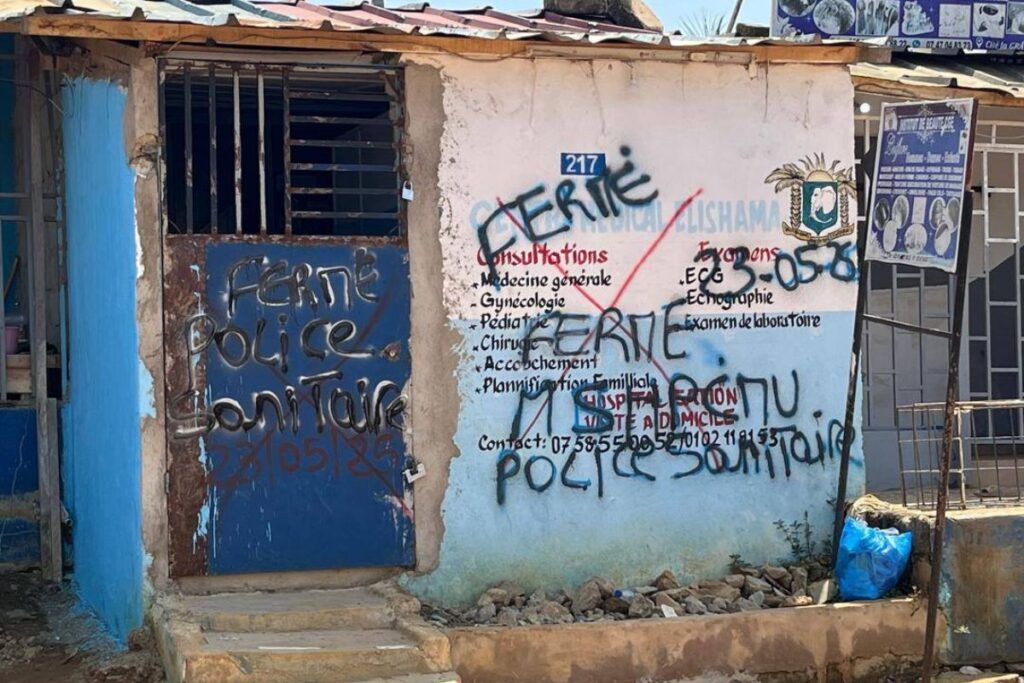 FERMÉ
POLICE
SANITAIRE
23/05/25
217
FERMÉ
CENTRE MEDICAL ELISHAMA
Consultations
. Médecine générale
. Gynécologie
. Pédiatrie
. Chirurgie
. Accouchement
. Plannification Familliale
Examens
. ECG
. Echographie
Examen de laboratoire
23-05-25
FERMÉ
HOSPITALISATION
VISITE A DOMICILE
Contact: 07 58 55 00 52/01 02 11 81 53
POLICE SANITAIRE
INSTITUT DE BEAUTE